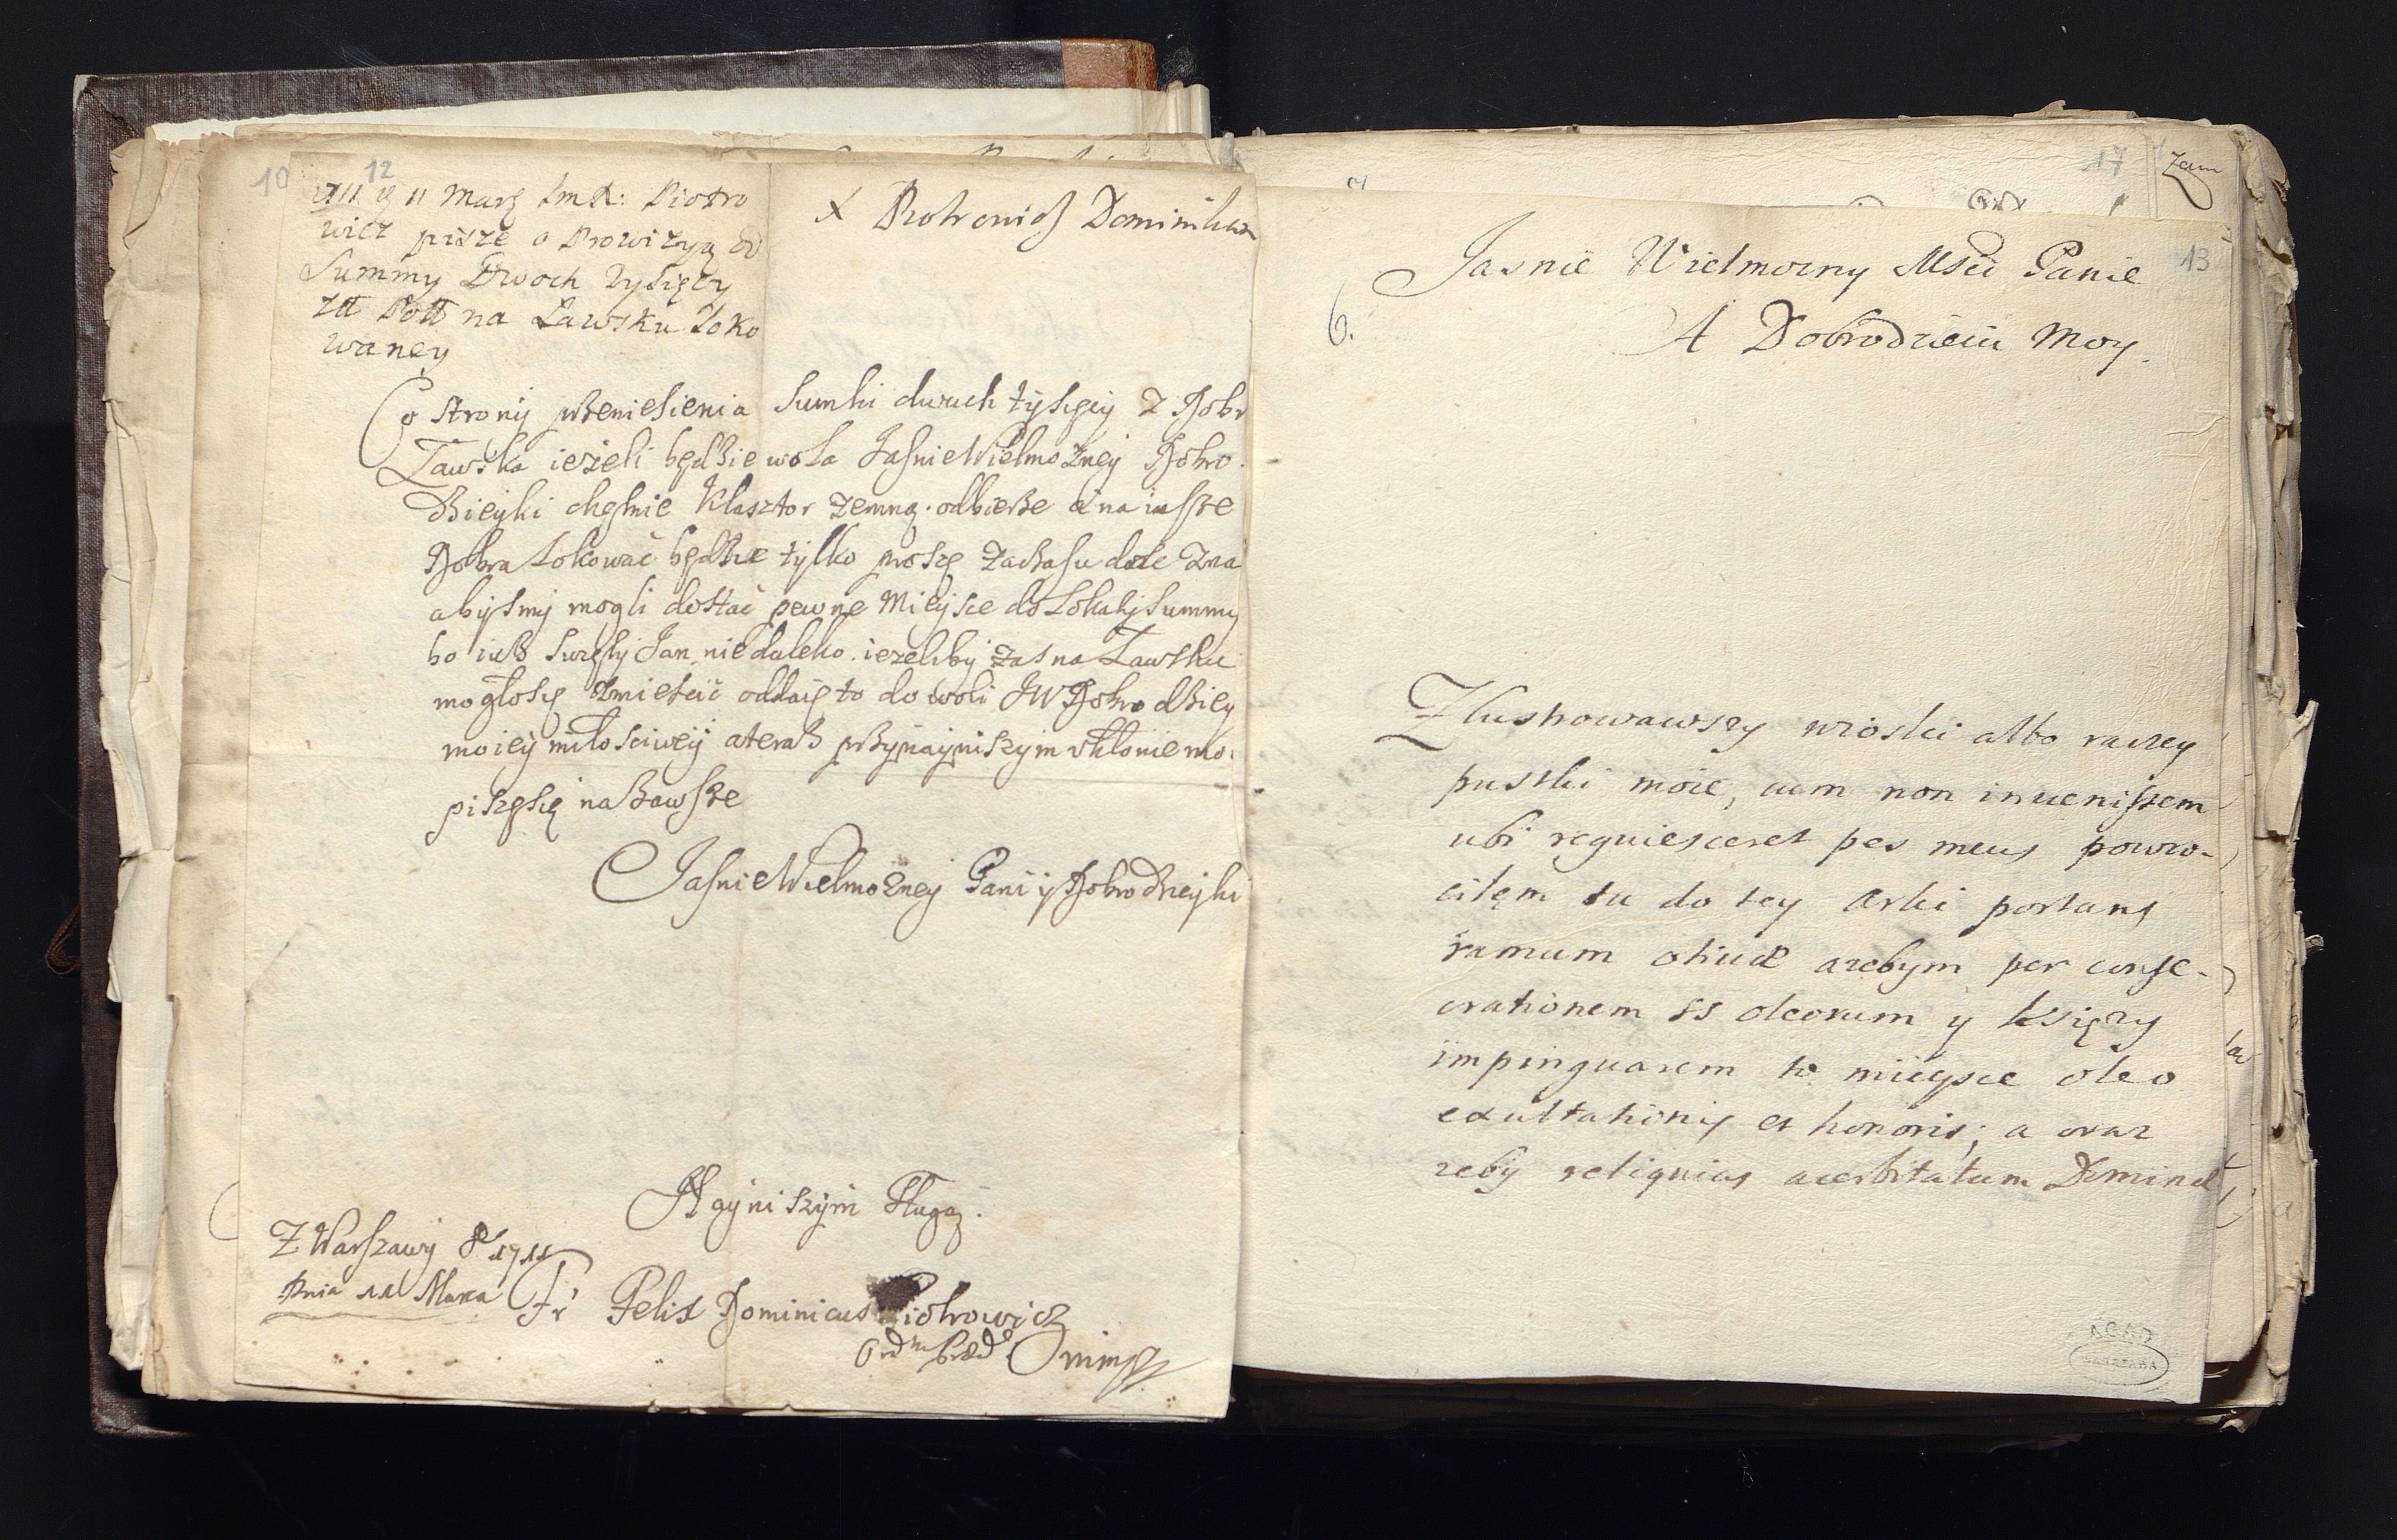 10
12
1711 q 11 Marz ImX: Piotro
wicz pisze o Prowizyą od
Summy Dwoch Tysięcy
złł Poll na Ławsku loko
waney
X Piotrowicz Dominikan
Co strony przeniesienia Sumki dwuch tysięcy z Dobr
Ławska ieżeli będzie wola JasnieWielmożney Dobro
dzieyki chętnie Klasztor zemną odbierze a na insze
Dobra lokować będzie tylko proszę zaczasu dac zna
abysmy mogli dostać pewne Mieysce do Lokaty Summy
bo iusz Swięty Jan niedaleko. iezeliby zas na Ławsku
mogłosię zmieścić oddaię to do woli JW Dobrodziey
moiey miłosciwey a teraz przynayniszym vkłonie mo.
piszęsię nazawsze
JasnieWielmożney Pani y Dobrodzieyki
Nayniszym Sługą.
Z Warszawy Rv 1711
Dnia 11 Marca
Fr Felix Dominicus Piotrowicz
Ordis Præd. mmpp
17
Zam
13
6.
Jasnie Wielmozny Msci Panie
A Dobrodzieiu Moy.
Zlustrowawszy wioski albo raczey
pustki moie, cum non invenissem
ubi requiesceret pes meus powro-
ciłem tu do tey Arki portans
ramum olivæ azebym per conse-
crationem SS oleorum y księzy
impinguarem to mieysce oleo
exultationis et honoris; a oraz
zeby reliquias acerbitatum Dominæ
AGAD
WARSZAWA